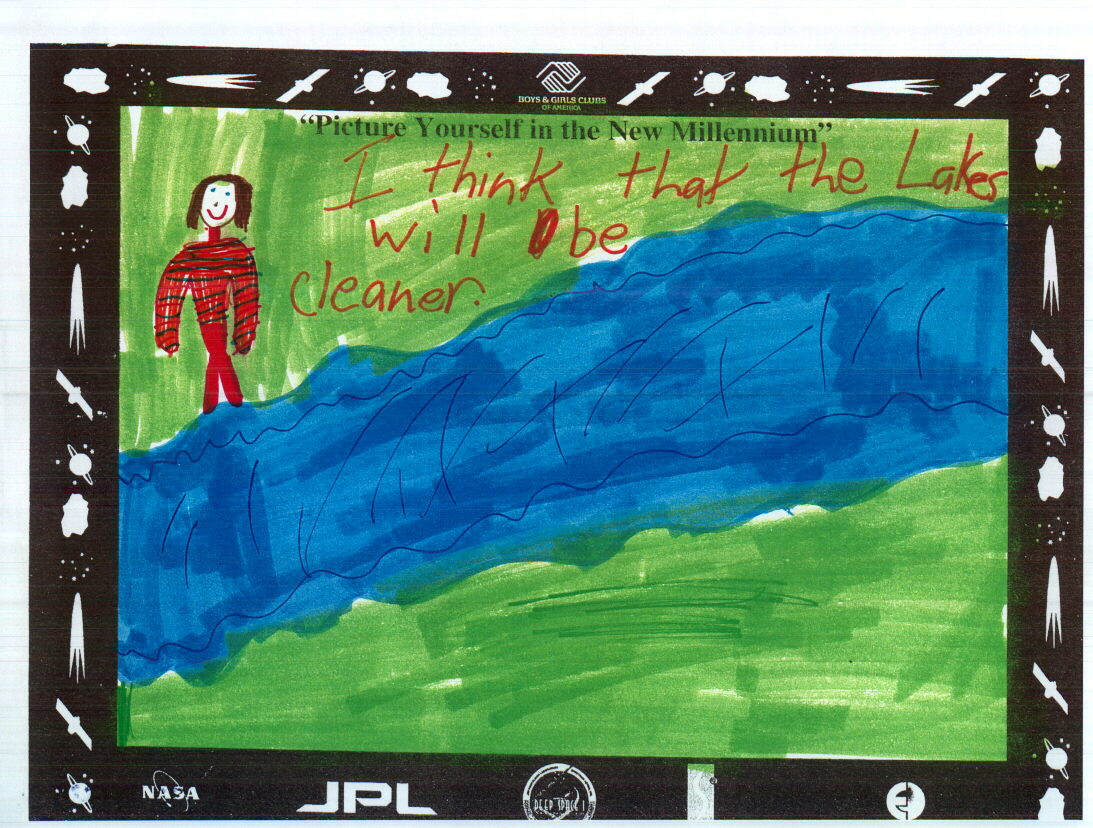 BOYS & GIRLS CLUBS
OF AMERICA
“Picture Yourself in the New Millennium”
I think that the Lakes
will be
cleaner.
NASA
JPL
DEEP SPACE 1